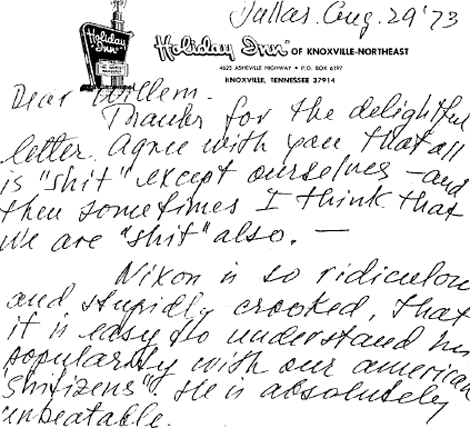 Dallas. Aug. 29 '73
Holiday Inn
Holiday Inn OF KNOXVILLE-NORTHEAST
4625 ASHEVILLE HIGHWAY • P.O. BOX 6197
KNOXVILLE, TENNESSEE 37914
Dear Willem.
Thanks for the delightful
letter. Agree with you that all
is "shit" except ourselves — and
then sometimes I think that
we are "shit" also. —
Nixon is so ridiculou
and stupidly crooked, that
it is easy to understand his
popularity with our american
"Shitizens". He is absolutely
unbeatable.